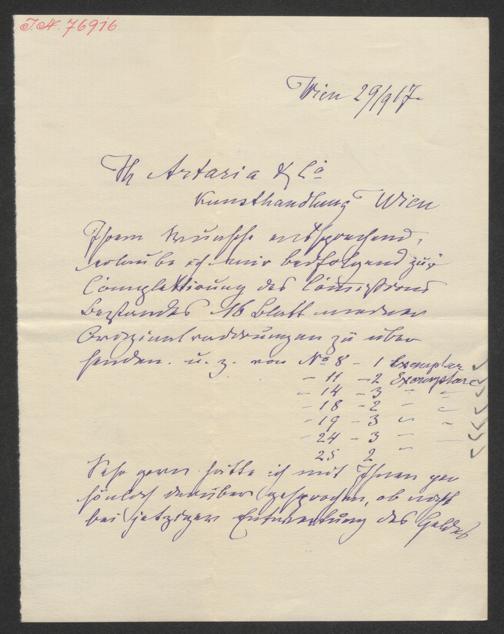 J.N. 76916
Wien 29/9 17.
Th Artaria & Co
Kunsthandlung Wien
Ihrem Wunsche entsprechend,
erlaube ich mir beifolgend zur
Complettirung des Comissions
Bestandes 16 Blatt meiner
Originalradirungen zu über
senden. u. z. von No 8 - 1 Exemplar
- 11 - 2 Exemplare
- 14 - 3 " "
- 18 - 2 " "
- 19 - 3 " "
- 24 - 3 " "
25 2 "
Sehr gern hätte ich mit Ihnen per
sönlich darüber gesprochen, ob nicht
bei jetziger Entwertung des Geldes